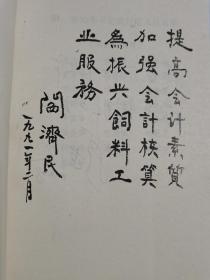 提高会计素质
加强会计核算
為振兴飼料工
业服務
阎濟民
一九九一年二月